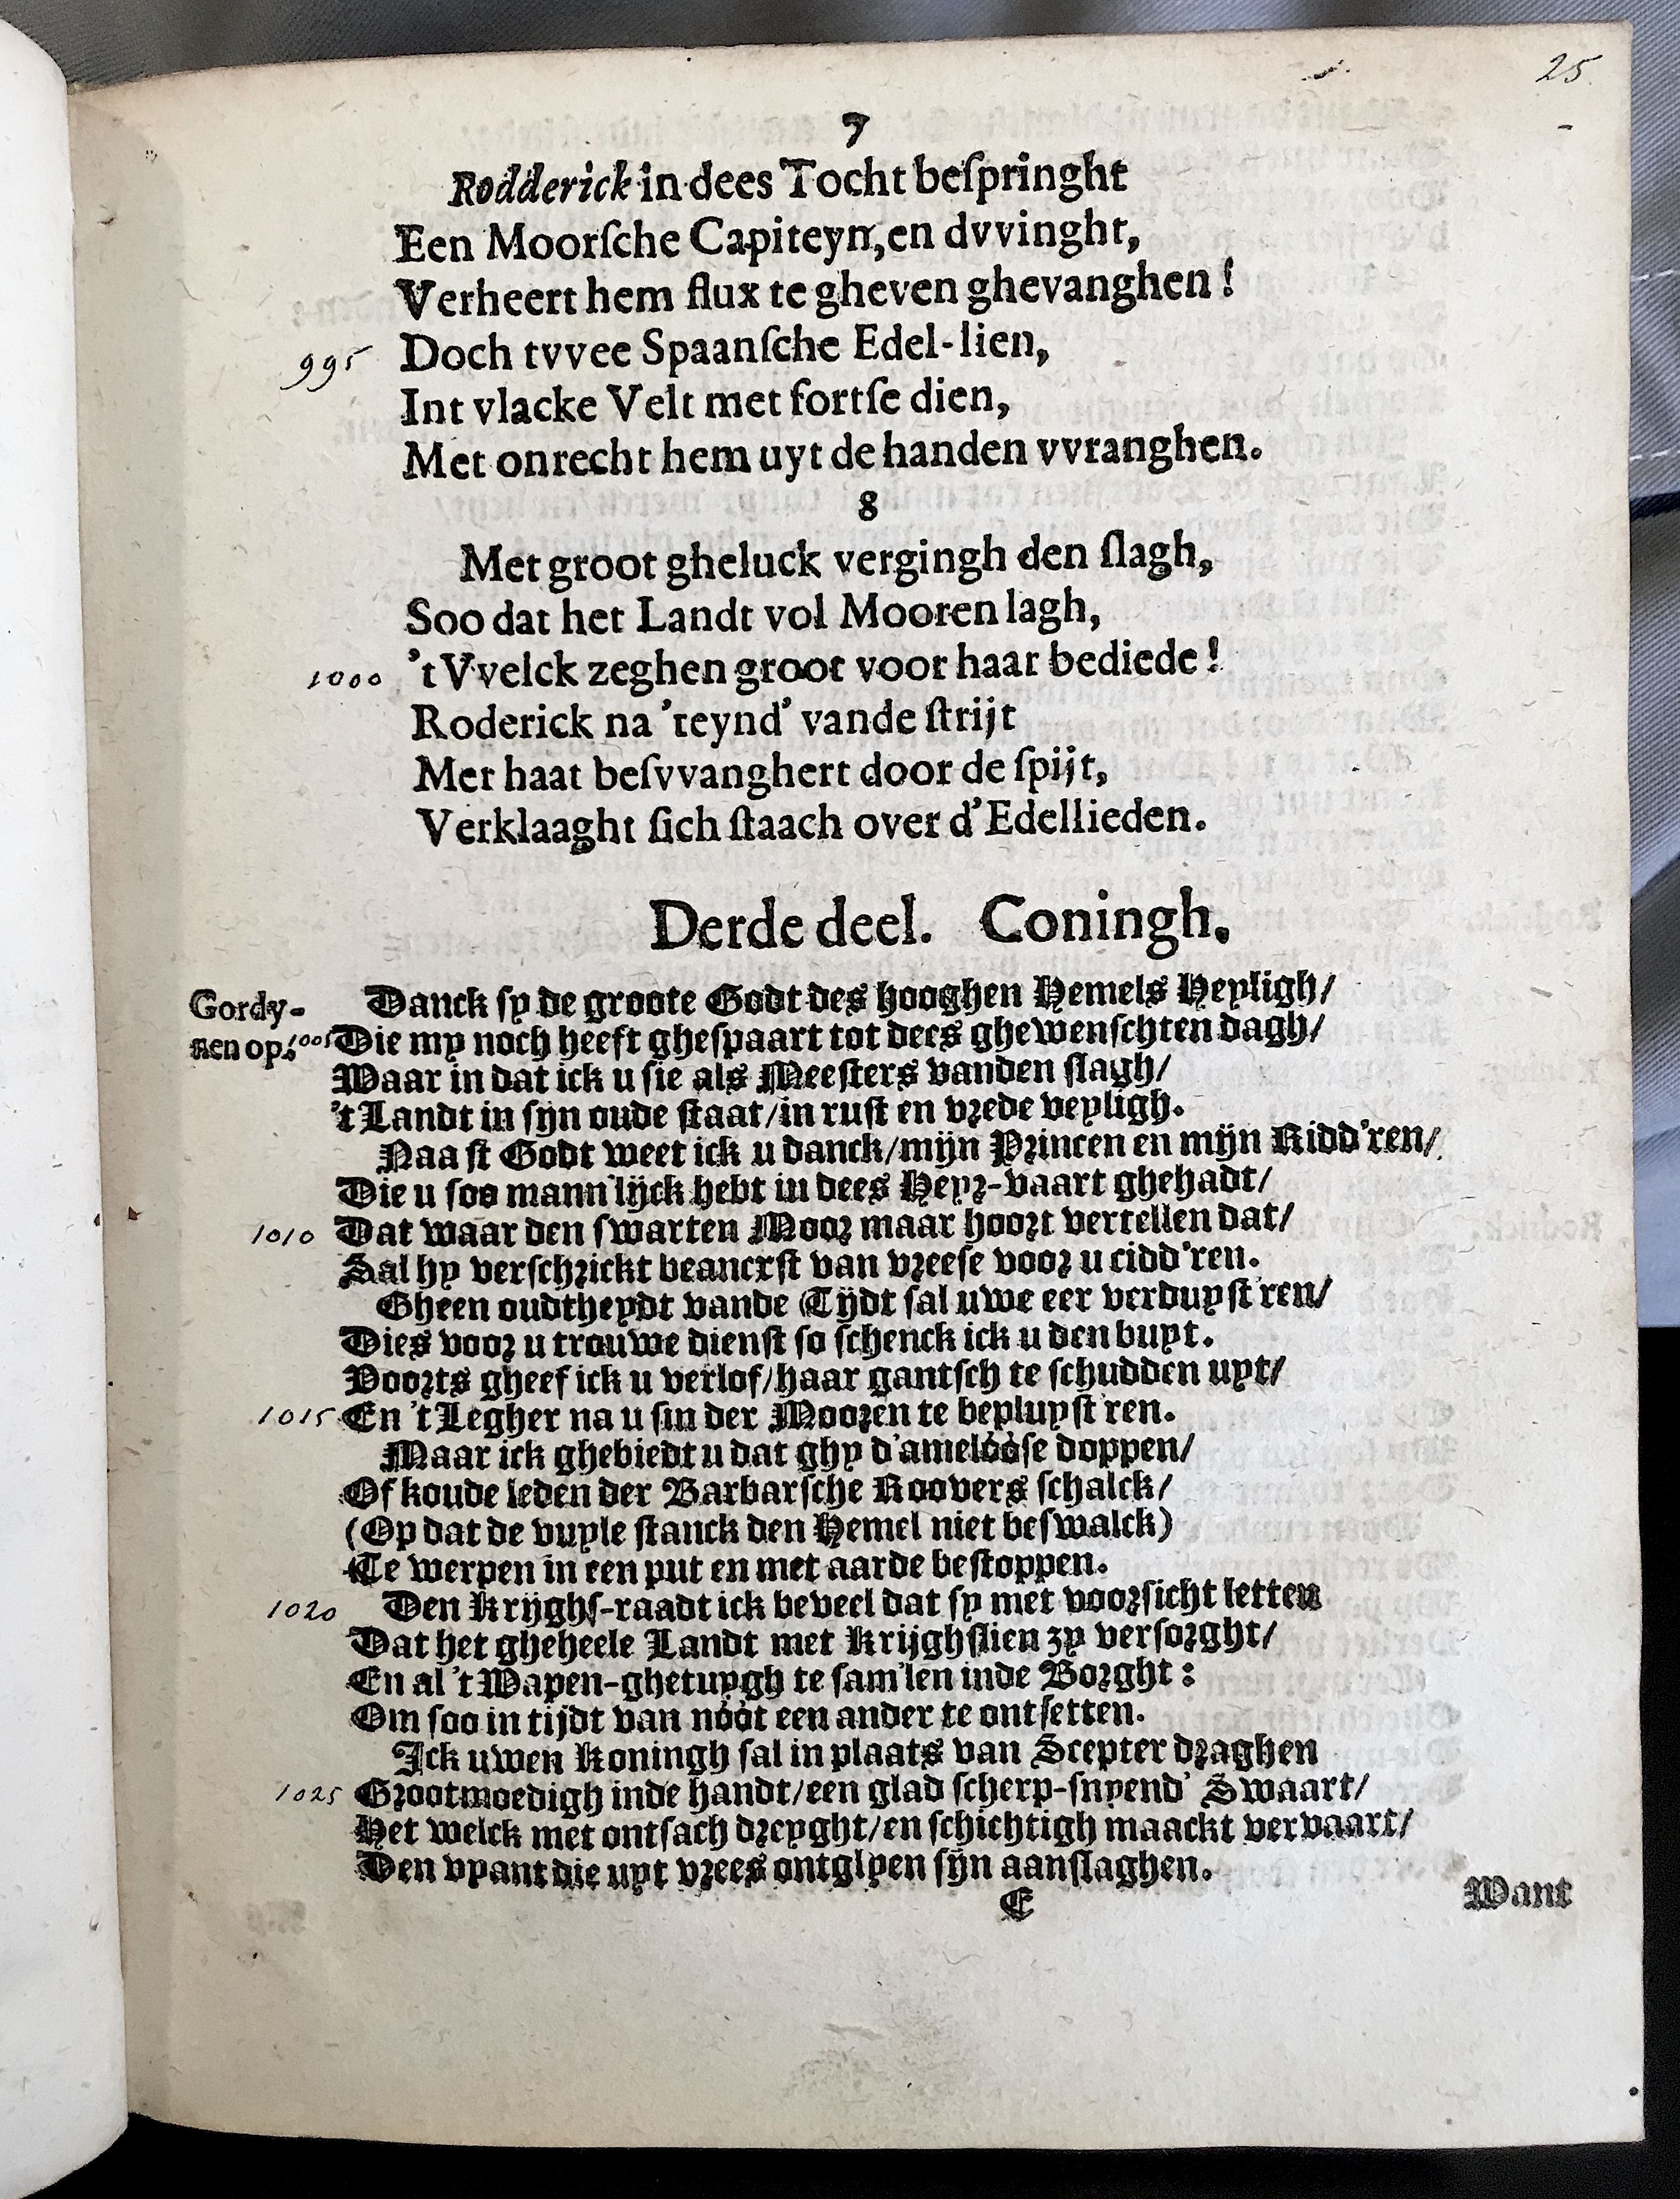 25
7
Rodderick in dees Tocht beſpringht
Een Moorſche Capiteyn, en dvvinght,
Verheert hem flux te gheven ghevanghen!
995 Doch tvvee Spaanſche Edel-lien,
Int vlacke Velt met fortſe dien,
Met onrecht hem uyt de handen vvranghen.
8
Met groot gheluck vergingh den ſlagh,
Soo dat het Landt vol Mooren lagh,
1000 't Vvelck zeghen groot voor haar bediede!
Roderick na 'teynd' vande ſtrijt
Met haat beſvvanghert door de ſpijt,
Verklaaght ſich ſtaach over d'Edellieden.
Derde deel. Coningh.
Gordy-
nen op. 1005
Danck ſy de groote Godt des hooghen Hemels Heyligh/
Die my noch heeft gheſpaart tot dees ghewenſchten dagh/
Waar in dat ick u ſie als Meeſters vanden ſlagh/
't Landt in ſijn oude ſtaat/in ruſt en vrede veyligh.
Naaſt Godt weet ick u danck/mijn Princen en mijn Ridd'ren/
Die u ſoo mann'lijck hebt in dees Heyr-vaart ghehadt/
1010 Dat waar den ſwarten Moor maar hoort vertellen dat/
Sal hy verſchrickt beancxſt van vreeſe voor u cidd'ren.
Gheen oudtheydt vande Tijdt ſal uwe eer verduyſt'ren/
Dies voor u trouwe dienſt ſo ſchenck ick u den buyt.
Voorts gheef ick u verlof/haar gantſch te ſchudden uyt/
1015 En 't Legher na u ſin der Mooren te bepluyſt'ren.
Maar ick ghebiedt u dat ghy d'amelóóſe doppen/
Of koude leden der Barbarſche Roovers ſchalck/
(Op dat de vuyle ſtanck den Hemel niet beſwalck)
Te werpen in een put en met aarde beſtoppen.
1020 Den Krijghſ-raadt ick beveel dat ſy met voorſicht letten
Dat het gheheele Landt met Krijghſlien zy verſorght/
En al 't Wapen-ghetuygh te ſam'len inde Borght:
Om ſoo in tijdt van nóót een ander te ontſetten.
Ick uwen Koningh ſal in plaats van Scepter draghen
1025 Grootmoedigh inde handt/een glad ſcherp-ſnyend' Swaart/
Het welck met ontſach dreyght/en ſchichtigh maackt vervaart/
Den vyant die uyt vrees ontglyen ſijn aanſlaghen.
E
Want